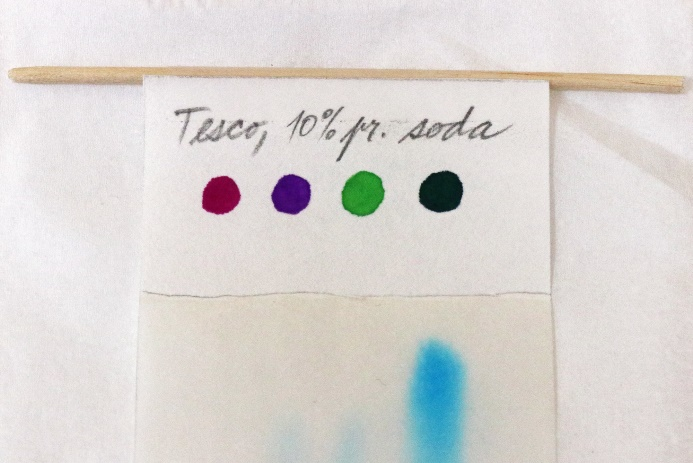 Tesco, 10% pr. soda